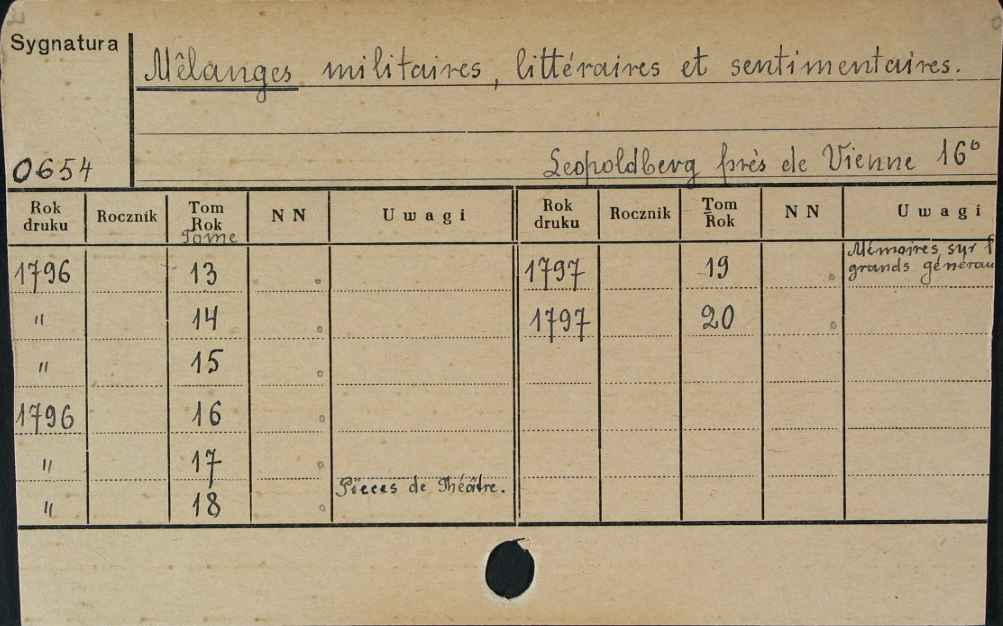 Sygnatura
Mêlanges militaires, littéraires et sentimentaires.
0654
Leopoldberg près de Vienne 16º
Rok druku Rocznik Tom Rok Tome N N Uwagi Rok druku Rocznik Tom Rok N N Uwagi
1796 13 1797 19 Mémoires sur
grands
" 14 1797 20
" 15
1796 16
" 17
" 18 Pièces de Théâtre.